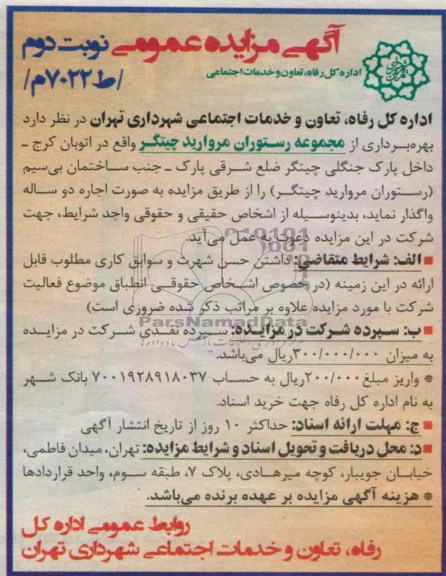 آگهی مزایده عمومی نوبت دوم
اداره کل رفاه، تعاون و خدمات اجتماعی
/ط۷۰۲۲م/
اداره کل رفاه، تعاون و خدمات اجتماعی شهرداری تهران در نظر دارد
بهره‌برداری از مجموعه رستوران مروارید چیتگر واقع در اتوبان کرج ـ
داخل پارک جنگلی چیتگر ضلع شرقی پارک ـ جنب ساختمان بی‌سیم
(رستوران مروارید چیتگر) را از طریق مزایده به صورت اجاره دو ساله
واگذار نماید، بدینوسیله از اشخاص حقیقی و حقوقی واجد شرایط، جهت
شرکت در این مزایده دعوت به عمل می‌آید.
■ الف: شرایط متقاضی: داشتن حسن شهرت و سوابق کاری مطلوب قابل
ارائه در این زمینه (در خصوص اشخاص حقوقی انطباق موضوع فعالیت
شرکت با مورد مزایده علاوه بر مراتب ذکر شده ضروری است)
ParsNamadData
■ ب: سپرده شرکت در مزایده: سپرده نقدی شرکت در مزایده
به میزان ۳۰۰/۰۰۰/۰۰۰ریال می‌باشد.
* واریز مبلغ ۲۰۰/۰۰۰ریال به حساب ۷۰۰۱۹۲۸۹۱۸۰۳۷ بانک شهر
به نام اداره کل رفاه جهت خرید اسناد.
■ ج: مهلت ارائه اسناد: حداکثر ۱۰ روز از تاریخ انتشار آگهی
■ د: محل دریافت و تحویل اسناد و شرایط مزایده: تهران، میدان فاطمی،
خیابان جویبار، کوچه میرهادی، پلاک ۷، طبقه سوم، واحد قراردادها
* هزینه آگهی مزایده بر عهده برنده می‌باشد.
روابط عمومی اداره کل
رفاه، تعاون و خدمات اجتماعی شهرداری تهران